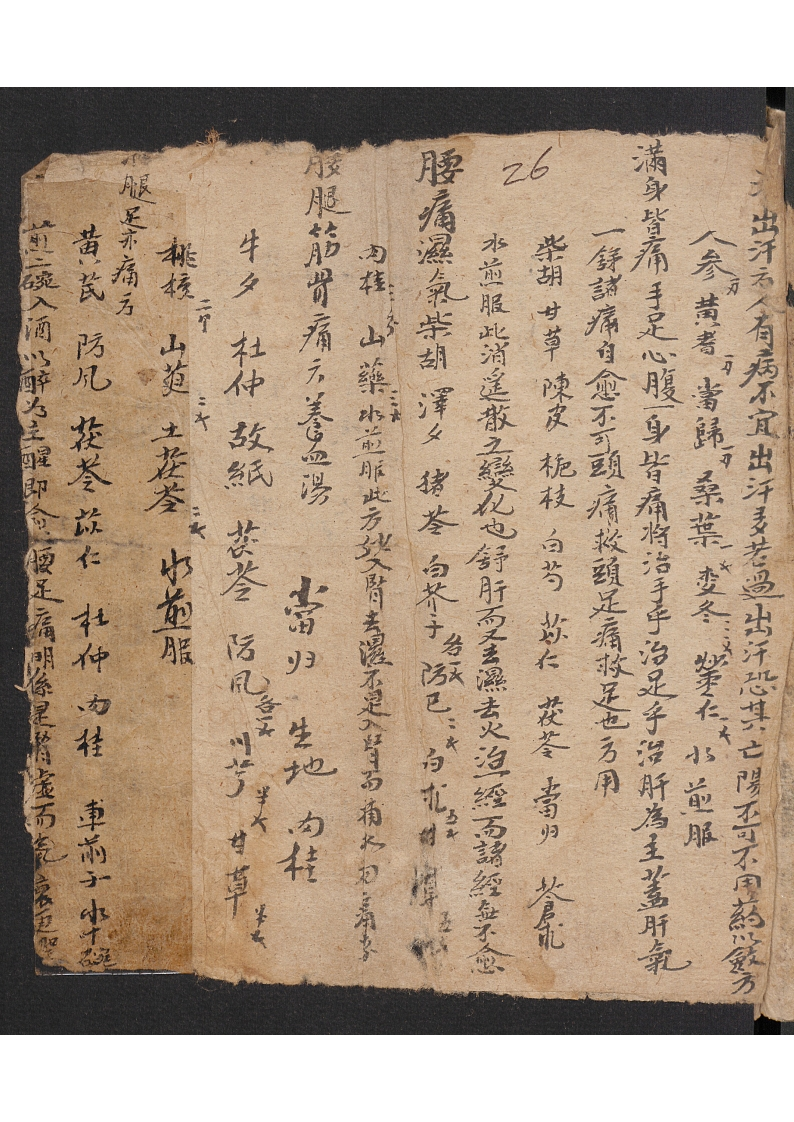 出汗方人有病不宜出汗多若過出汗恐其亡陽不可不用药以歛方
人参 黄耆 當歸 桑葉 麦冬 水煎服
二刃 一刃 一刃 一戈 三戈 一戈
滿身皆痛手足心腹一身皆痛將治手乎治足乎治肝為主蓋肝氣
一舒諸痛自愈不可頭痛救頭足痛救足也方用
柴胡 甘草 陳皮 梔枝 白芍 苡仁 茯苓 當归 苍朮
水煎服此消遥散之變化也舒肝而又去濕去火治一經而諸經無不愈
26
腰痛濕氣柴胡 澤夕 猪苓 白芥子 防已 白朮 甘草
各一戈 二戈 五戈 五
肉桂 山藥水煎服此方入腎去濕不是入腎而補水
三分 三戈
腰腿筋骨痛方養血湯 當归 生地 肉桂
牛夕 杜仲 故紙 茯苓 防风 川芎 甘草
各一戈 半戈 半戈
桃核 山萸 土茯苓 水煎服
二个 二戈 二戈
腿足亦痛方
黄芪 防风 茯苓 苡仁 杜仲 肉桂 車前子 水十碗
煎二碗入酒以醉为主醒即愈腰足痛明係是腎虚而氣衰更